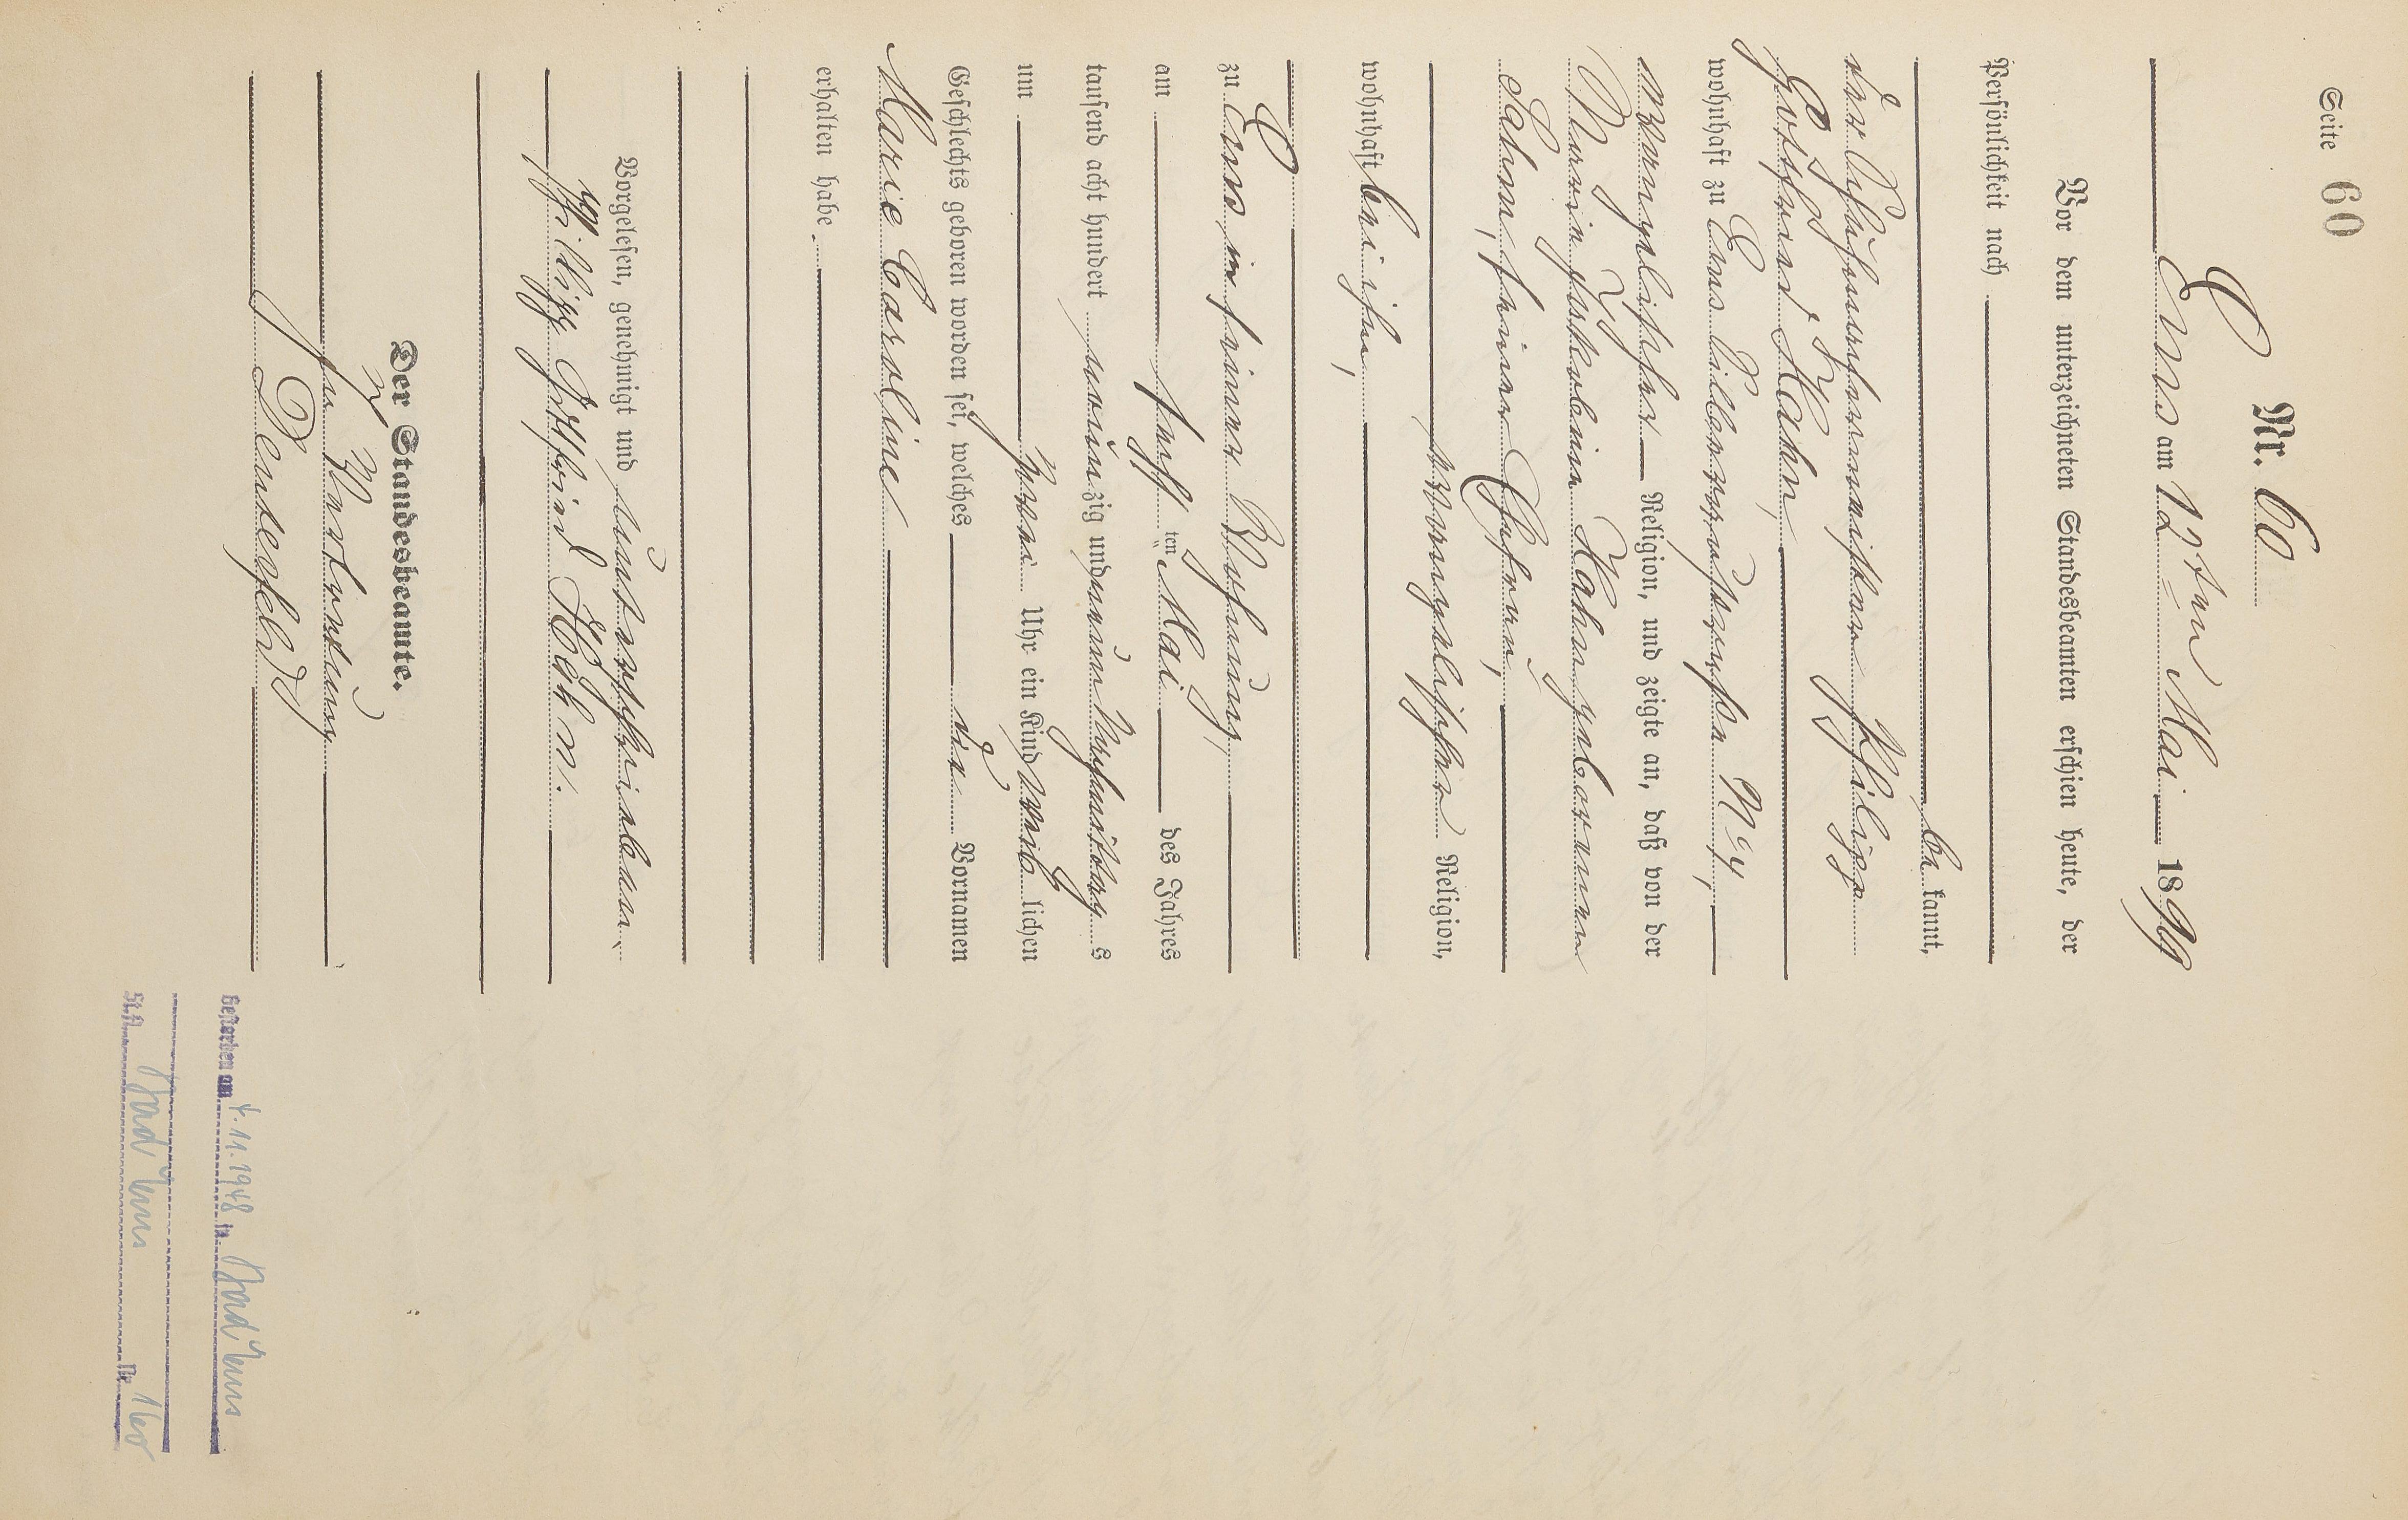 Seite 60
Nr. 60
Ems am 12ten Mai 1899
Vor dem unterzeichneten Standesbeamten erschien heute, der
Persönlichkeit nach
be kannt,
der
Philipp
Gottfried Hahn,
wohnhaft zu Ems N° 4,
evangelischer Religion, und zeigte an, daß von der
Marie Hahn geborenen
seiner Ehefrau,
evangelischer Religion,
wohnhaft bei ihm,
zu Ems, in seiner Wohnung,
am fünf ten Mai des Jahres
tausend acht hundert neun zig und neun Vormittag s
um zwei Uhr ein Kind weib lichen
Geschlechts geboren worden sei, welches die Vornamen
Marie Caroline
erhalten habe.
Vorgelesen, genehmigt und unterschrieben.
Philipp Gottfried Hahn.
Der Standesbeamte.
In Vertretung
gestorben am 4.11.1948 in Bad Ems
St.A. Bad Ems Nr. 160